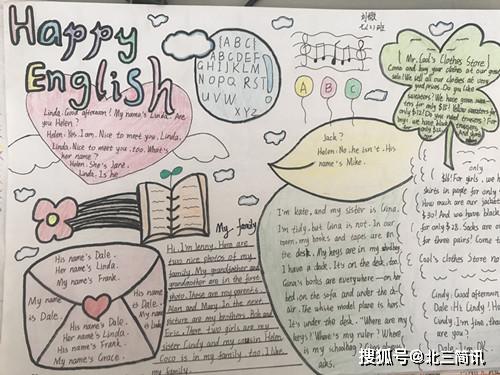 Happy
English
刘
[ABC]
ABCDEF
GHIJKLM
NOPQRST
UVW
XYZ
A B C
Linda: Good afternoon! My name's Linda. Are
you Helen?
Helen: Yes, I am. Nice to meet you, Linda.
Linda: Nice to meet you, too. What's
her name?
Helen: She's Jane.
Linda: Is he
Jack?
Helen: No, he isn't. His
name's Mike.
Mr. Cool's Clothes Store
Come and buy your clothes at our great
sale! We sell all our clothes at very
good prices. Do you like
sweaters? We have green
ters for only $15! Yellow sweaters for
only $12! Do you need trousers? For
boys, we have black
for only $22.
only
$18! For girls, we h
shirts in purple for only
How much are our jackets
$30! And we have black
for only $28. Socks are o
for three pairs! Come to
Cool's Clothes Store no
Cindy: Good afternoon
Dale: Hi, Cindy!
Cindy: I'm fine,
are you
Dale: I'm OK.
I'm Kate, and my sister is Gina.
I'm tidy, but Gina is not. In our
room, my books and tapes are on
the desk. My keys are in my
I have a clock. It's on the desk, too.
Gina's books are everywhere — on her
bed, on the sofa and under the
air. The white model plane is hers.
It's under the desk. "Where are my
keys? Where's my ruler? Where
is my schoolbag?" Gina always
asks.
My family
Hi, I'm Jenny. Here are
two nice photos of my
family. My grandfather and
grandmother are in the first
photo. These are my parents,
Alan and Mary. In the next
picture are my brothers, Bob and
Eric. These two girls are my
sister Cindy and my cousin Helen.
Coco is in my family, too. I like
my family.
His name's Dale.
Her name's Linda.
My name's Frank.
My name
is Dale.
My name
is Dale.
His name's Dale.
Her name's Linda.
His name's Frank.
My name's Grace.
搜狐号@北三简讯